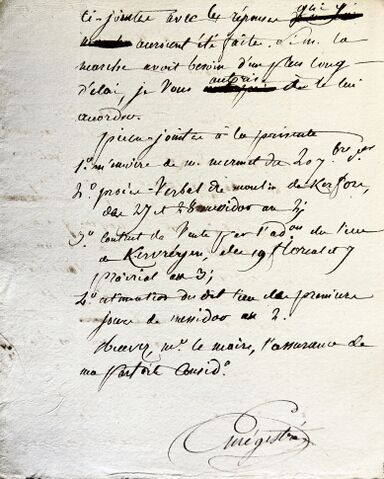 ci-jointes avec les réponses qui y
auroient été faites. Si M. la
marche avoit besoin d'un plus long
délai, je vous autorise à le lui
accorder.
Pièces jointes à la présente
1° mémoire de M. mermet du 20 7bre dr
2° procès-verbal de moulin de Kerfors,
des 27 et 28 messidor an 2;
3° contrat de vente par l'adon du lieu
de Kervreyen, des 19 floréal et 7
prairial an 3;
4° estimation du dit lieu du premier
jour de messidor an 2.
Recevez, mr. le maire, l'assurance de
ma parfaite considon.
Enrégistré